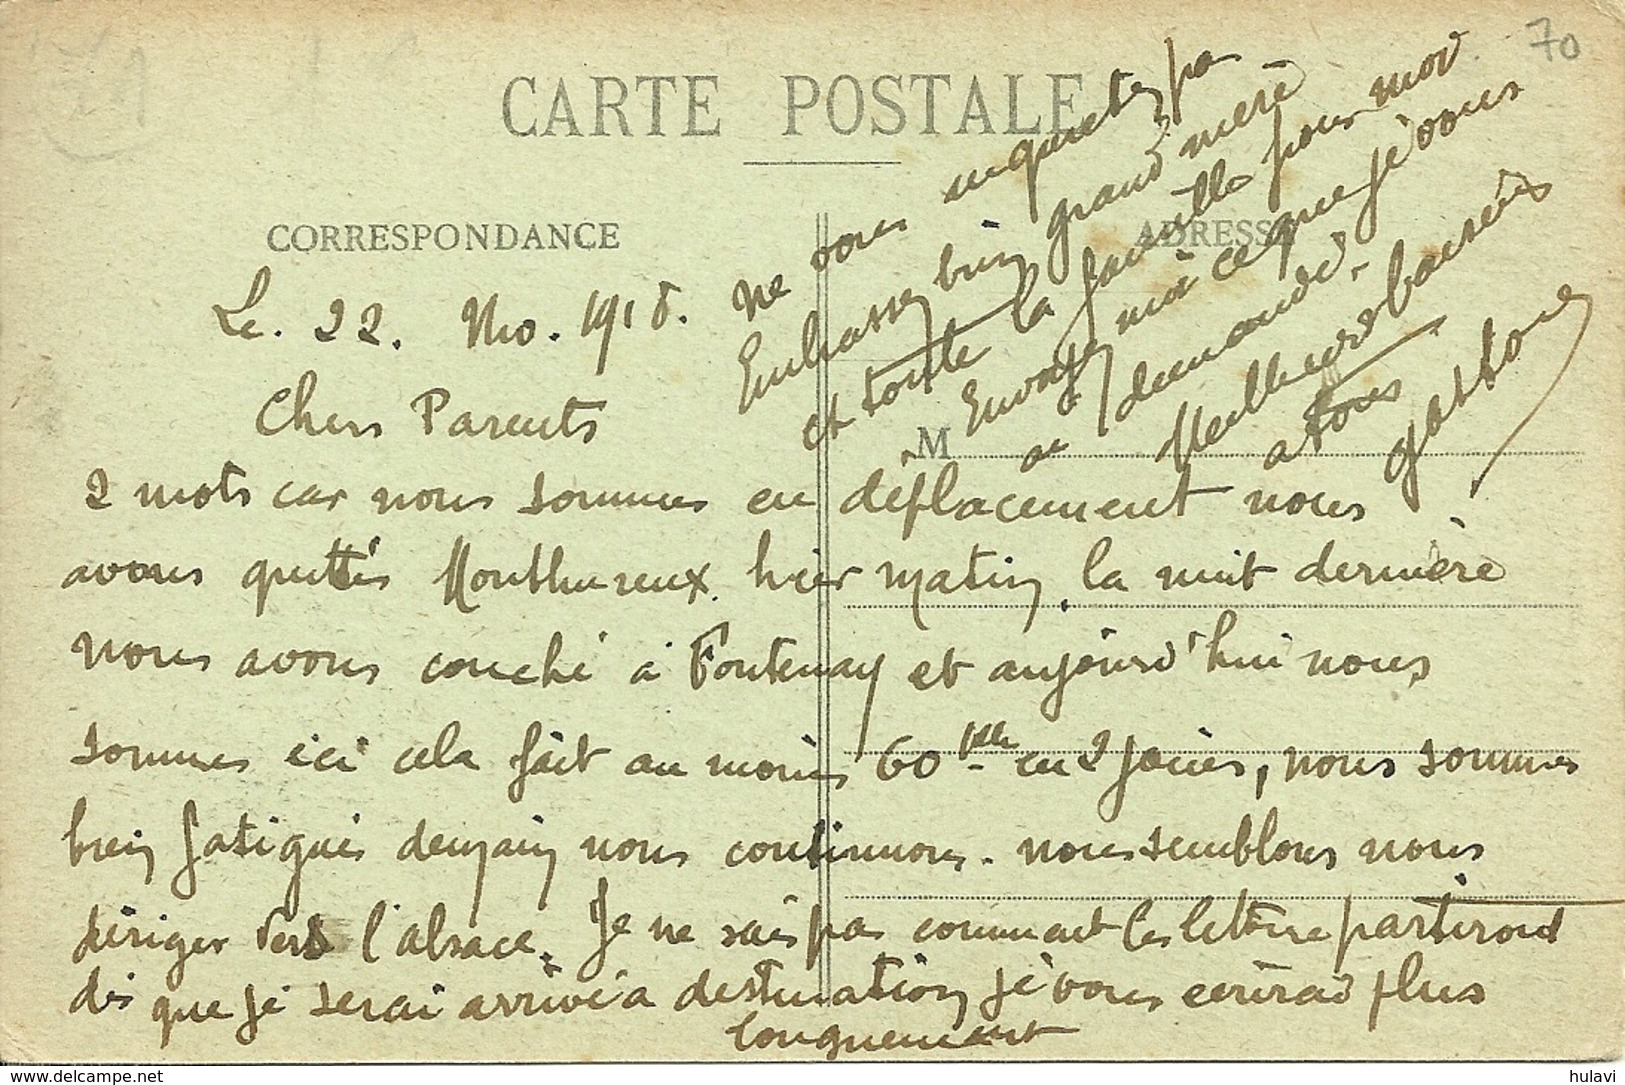 70
CARTE POSTALE
CORRESPONDANCE
ADRESSE
M
Le. 22. No. 1918.
Chers Parents
2 mots car nous sommes en déplacement nous
avons quittés Monthureux hier matin, la nuit dernière
nous avons couché à Fontenay et aujourd'hui nous
sommes ici cela fait au moins 60 en 2 jours, nous sommes
bien fatigués demain nous continuons. nous semblons nous
diriger vers l'alsace. Je ne sais pas comment les lettre partiront
dès que je serai arrivé a destination je vous écrirai plus
longuement
Ne vous inquietez pas
Embrassez bien grand mère
et toute la famille pour moi.
Envoyez moi ce que je vous
ai demandé.
Meilleurs baisers
a tous
Gaston
hulavi
www.delcampe.net